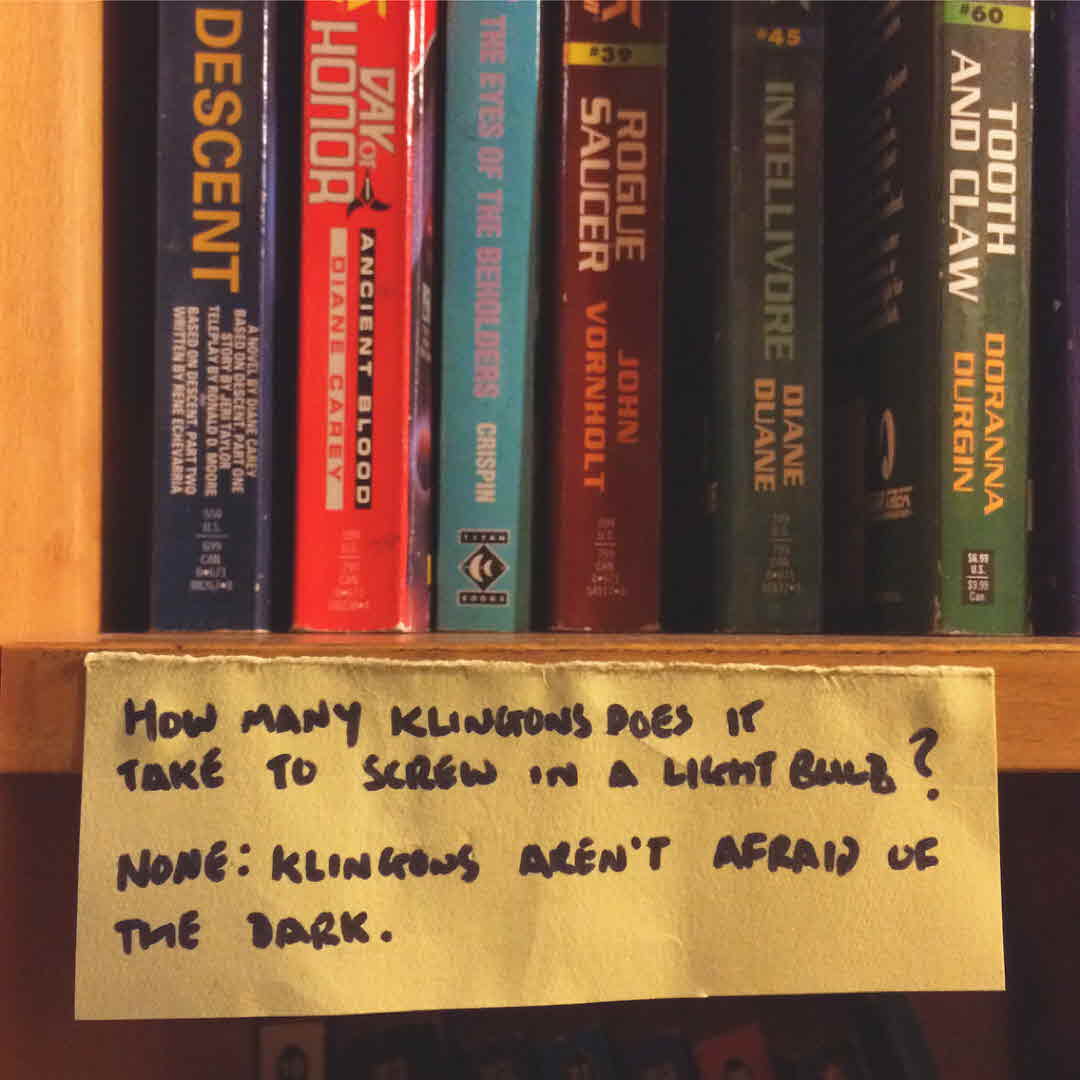 DESCENT
A NOVEL BY DIANE CAREY
BASED ON DESCENT, PART ONE
STORY BY JERI TAYLOR
TELEPLAY BY RONALD D. MOORE
BASED ON DESCENT, PART TWO
WRITTEN BY RENÉ ECHEVARRIA
U.S.
CAN
DAY OF
HONOR
ANCIENT BLOOD
DIANE CAREY
THE EYES OF THE BEHOLDERS CRISPIN
TITAN
BOOKS
#39
ROGUE
SAUCER
JOHN
VORNHOLT
#45
INTELLIVORE
DIANE
DUANE
#60
TOOTH
AND CLAW
DORANNA
DURGIN
$6.99
U.S.
$9.99
Can.
HOW MANY KLINGONS DOES IT
TAKE TO SCREW IN A LIGHT BULB?
NONE: KLINGONS AREN'T AFRAID OF
THE DARK.